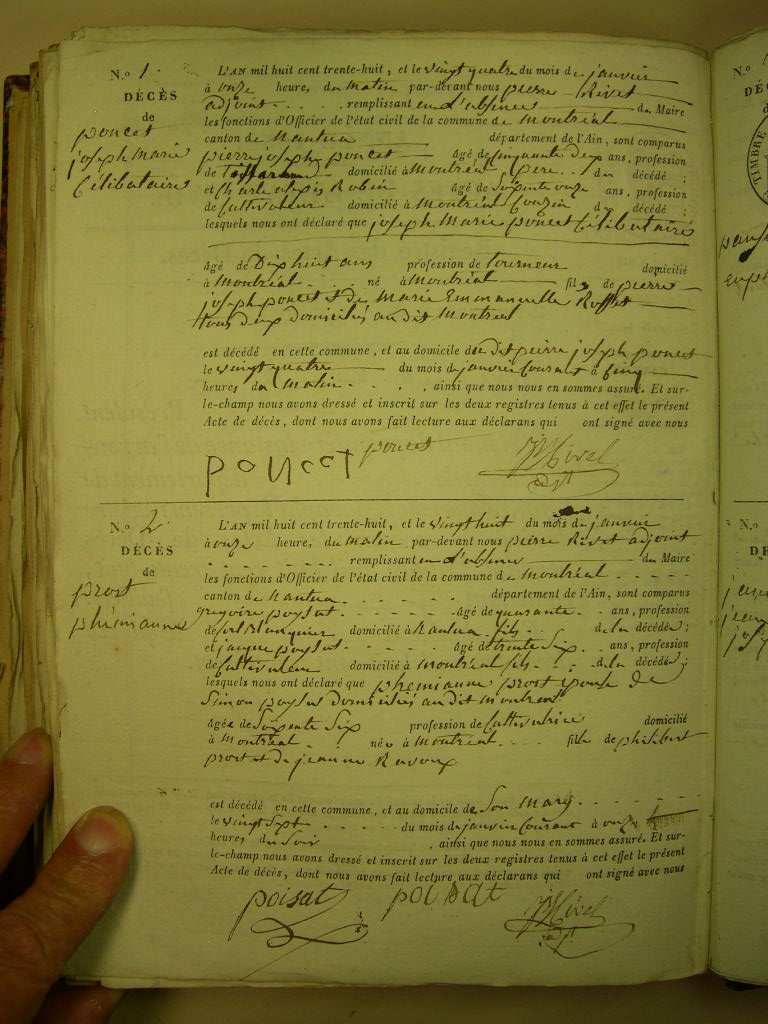 N.o 1.
DÉCÈS
de
poncet
joseph marie
Célibataire
L'AN mil huit cent trente-huit, et le vingt quatre du mois de janvier
à onze heures, du matin par-devant nous pierre Rivet
adjoint remplissant en l'absence du Maire
les fonctions d'Officier de l'état civil de la commune de montréal
canton de nantua département de l'Ain, sont comparus
pierre joseph poncet âgé de cinquante deux ans, profession
de domicilié à montréal père du décédé ;
et Charle alexis Robin âgé de soixante onze ans, profession
de Cultivateur domicilié à montréal Couzin du décédé ;
lesquels nous ont déclaré que joseph Marie poncet Célibataire
âgé de Dix huit ans profession de tourneur domicilié
à montréal né à montréal fils de pierre
joseph poncet et de Marie Emmanuelle Rosset
tous deux domiciliés au dit Montréal
est décédé en cette commune, et au domicile du dit pierre joseph poncet
le vingt quatre du mois de janvier Courant à cinq
heures, du matin, ainsi que nous nous en sommes assuré. Et sur-
le-champ nous avons dressé et inscrit sur les deux registres tenus à cet effet le présent
Acte de décès, dont nous avons fait lecture aux déclarans qui ont signé avec nous
poncet poncet Rivet
adjt
N.o 2.
DÉCÈS
de
prost
phémianne
L'AN mil huit cent trente-huit, et le vingt huit du mois de janvier
à onze heure, du matin par-devant nous pierre Rivet adjoint
remplissant en l'absence du Maire
les fonctions d'Officier de l'état civil de la commune de montréal
canton de nantua département de l'Ain, sont comparus
gregoire poysat âgé de quarante ans, profession
de domicilié à nantua fils de la décédée ;
et jacque poysat âgé de trente six ans, profession
de Cultivateur domicilié à montréal fils de la décédée ;
lesquels nous ont déclaré que phemianne prost épouse de
Simon poysat domiciliés au dit montréal
âgée de soixante six profession de Cultivatrice domicilié
à montréal née à montréal fille de philibert
prost et de jeanne
est décédé en cette commune, et au domicile de son mary
le vingt sept du mois de janvier Courant à onze
heures du soir, ainsi que nous nous en sommes assuré. Et sur-
le-champ nous avons dressé et inscrit sur les deux registres tenus à cet effet le présent
Acte de décès, dont nous avons fait lecture aux déclarans qui ont signé avec nous
poisat poisat Rivet
adjt
TIMBRE
N.o